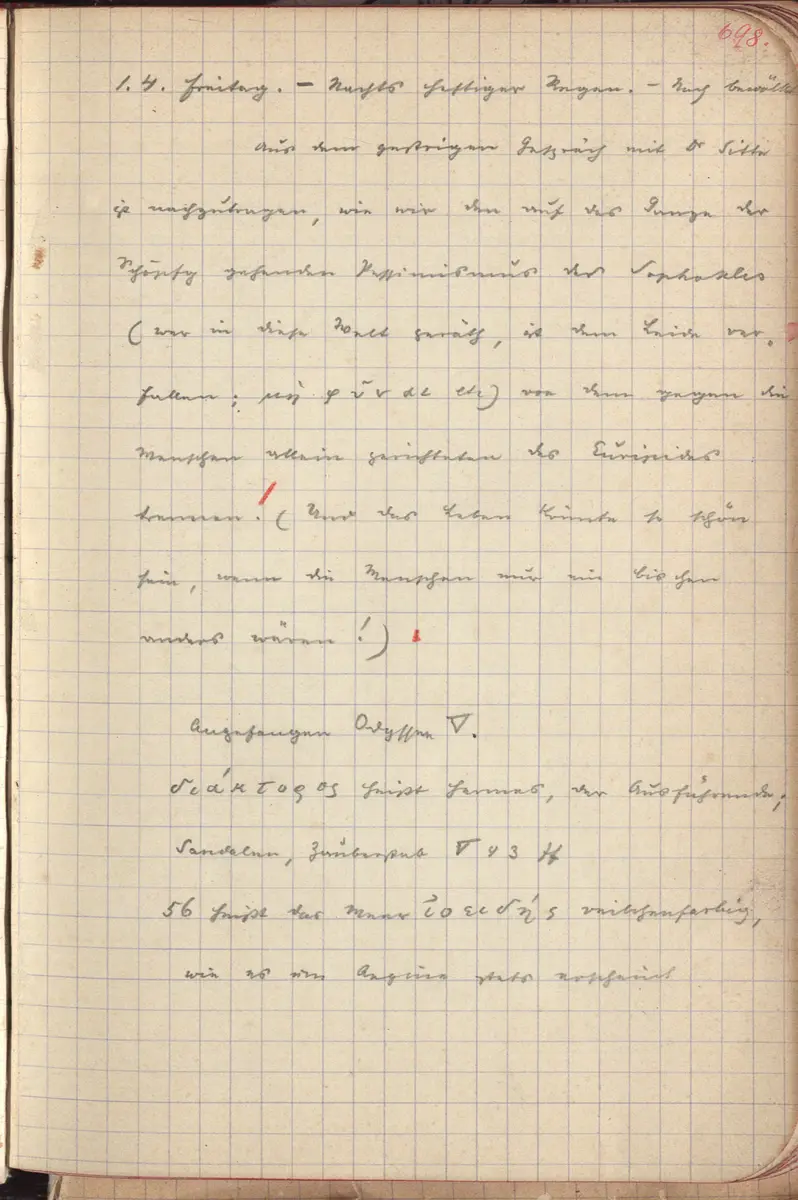 698.
1. 4. Freitag. – Nachts heftiger Regen. – Noch bewölkt
Aus dem gestrigen Gespräch mit Dr Sitte
ist nachzutragen, wie wir den auf das Ganze der
Schöpfg gehenden Pessimismus des Sophokles
(wer in diese Welt geräth, ist dem Leide ver-
fallen; μὴ φῦναι etc) von dem gegen die
Menschen allein gerichteten des Euripides
trennen! (Und das Leben könnte so schön
sein, wenn die Menschen nur ein bischen
anders wären!)
Angefangen Odyssee V.
διάκτορος heißt Hermes, der Ausführende;
Sandalen, Zauberstab V 43 ff
56 heißt das Meer ἰοειδής veilchenfarbig,
wie es um Aegina stets erscheint